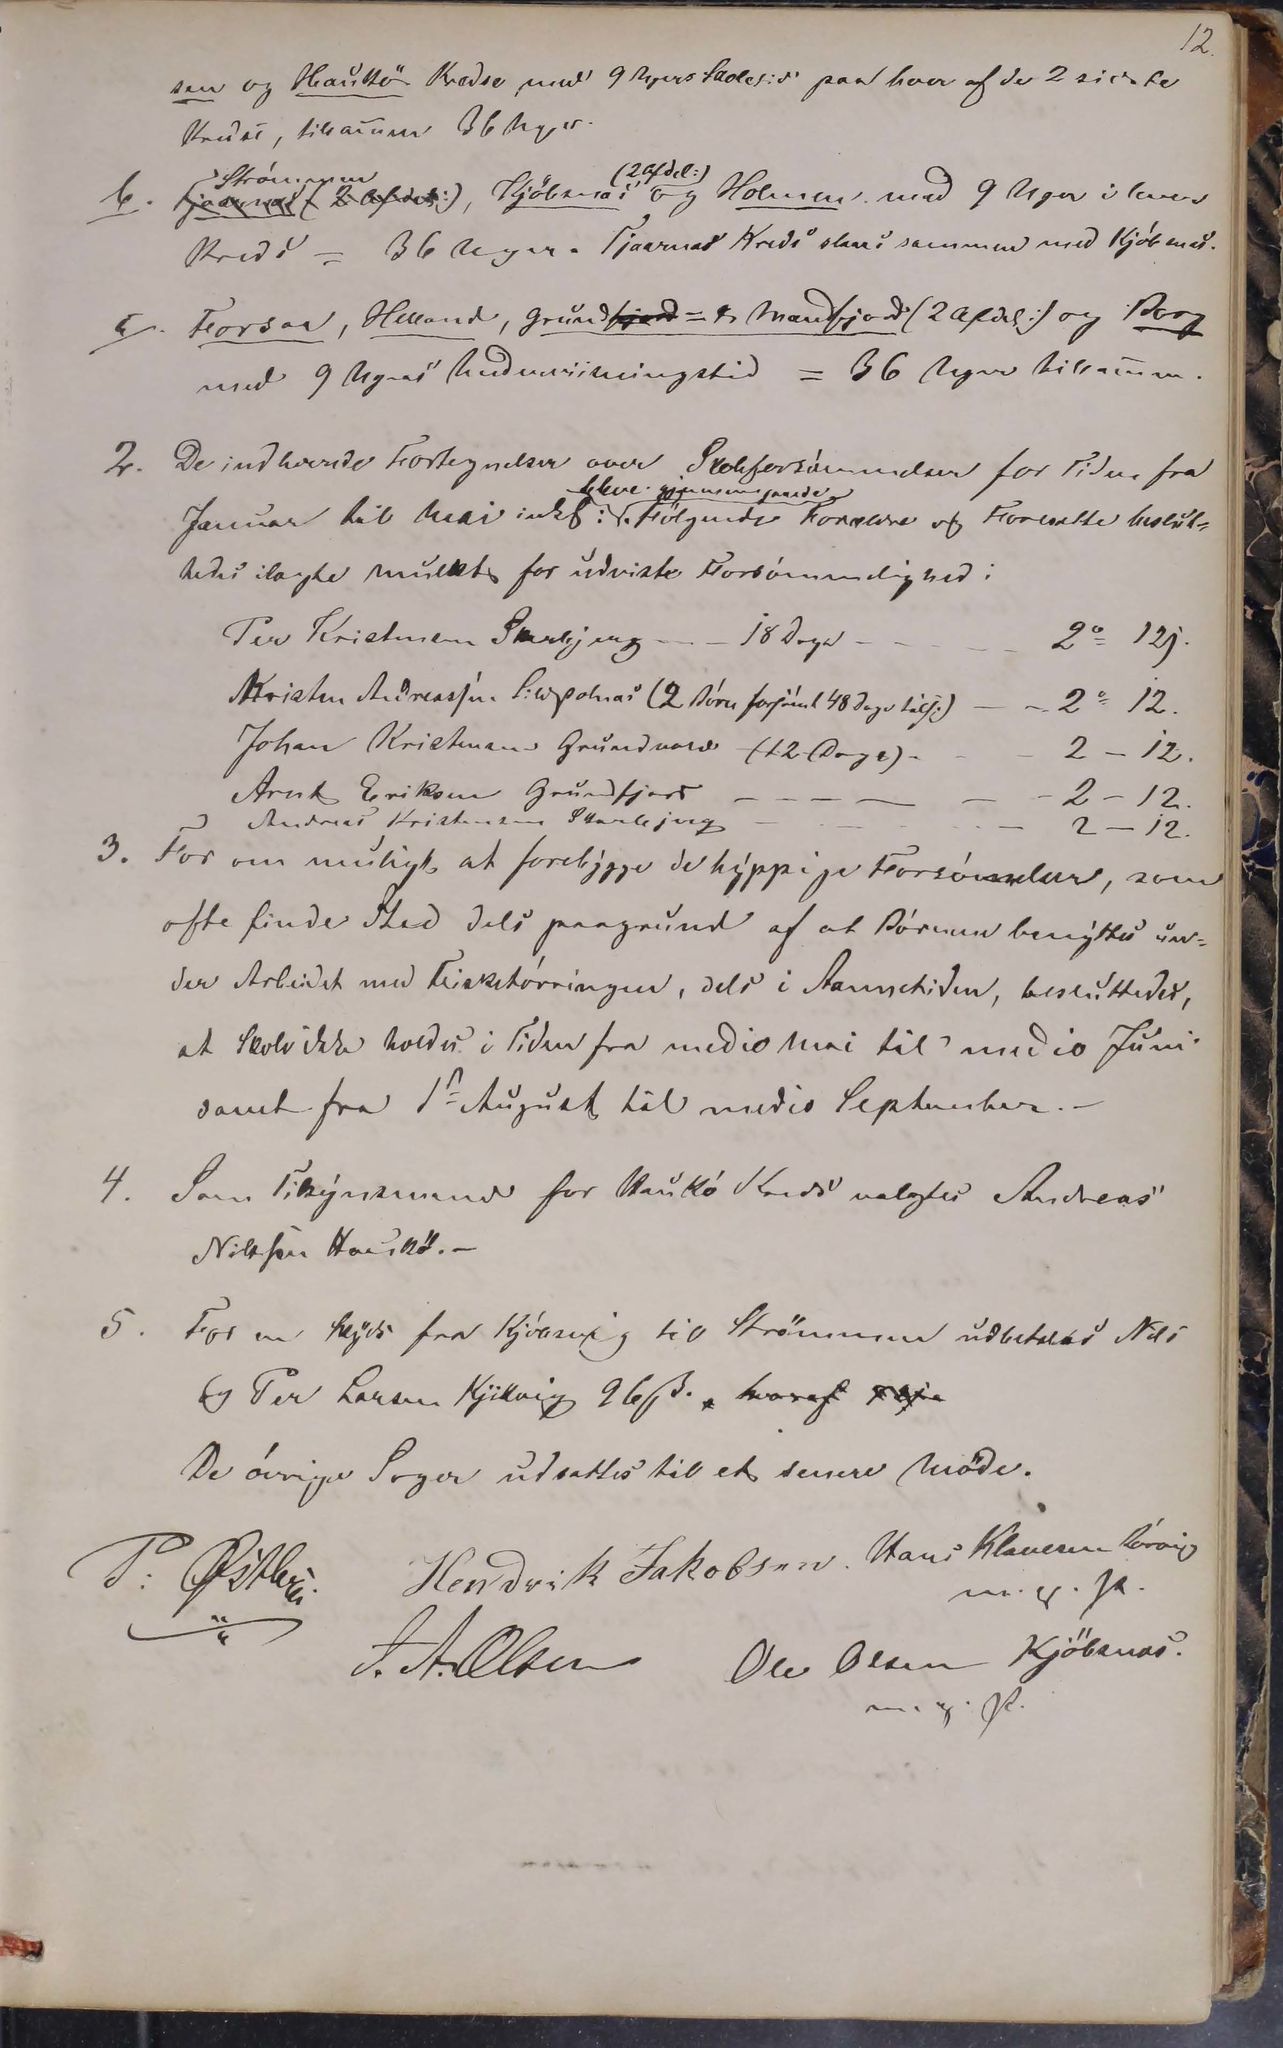 12.
sen og Haukö Kredse med 9 Ugers Skoletid paa hver af de 2 sidste
Kredse, tilsammen 36 Uger.
Strömmen (2 Afdel:)
b. Tjaarnæs (2 Afdel:), Kjöbsnæs og Holmen med 9 Uger i hver
Kreds = 36 Uger. Tjaarnæs Kreds slaaes sammen med Kjöbsnæs.
c. Forsaa, Helland, Grundfjord = & Mandfjord (2 Afdel:) og Borg
med 9 Ugers Underviisningstid = 36 Uger tilsammen.
2. De indhævede Fortegnelser over Skoleforsömmelser for Tiden fra
bleve gjennemgaaede
Januar til Mai inkl: Fölgende Forældre og Foresatte beslut-
tedes ilagte Mulkt for udviste Forsömmelighed:
Per Kristensen Skarbjerg — 18 Dage — 2 = 12 j.
Kristen Andreassen (2 Börn forsömt 48 Dage tils:) — 2 = 12.
Johan Kristensen Grundvand (12 Dage) — 2 — 12.
Arnt Eriksen Grundfjord — 2 — 12.
Andreas Kristensen Skarbjerg — 2 — 12.
3. For om muligt at forebygge de hyppige Forsömmelser, som
ofte finde Sted dels paagrund af at Börnene benyttes un-
der Arbeidet med Fisketörringen, dels i Aannetiden, besluttedes,
at Skole ikke holdes i Tiden fra medio Mai til medio Juni
samt fra 1ste August til medio September. —
4. Som Tilsynsmand for Haukö Kreds valgtes Andreas
Nilssen Haukö. —
5. For en Skyds fra Kjöbsvig til Strömmen udbetales Nils
og Per Larsen Kjikvig 96 ß. hvoraf
De övrige Sager udsattes til et senere Möde.
P. Østbye.
Hendrik Jakobsen. Hans Klausen Lörvig
m. p. P.
J. A. Olsen
Ole Olsen Kjöbsnæs.
m. p. P.